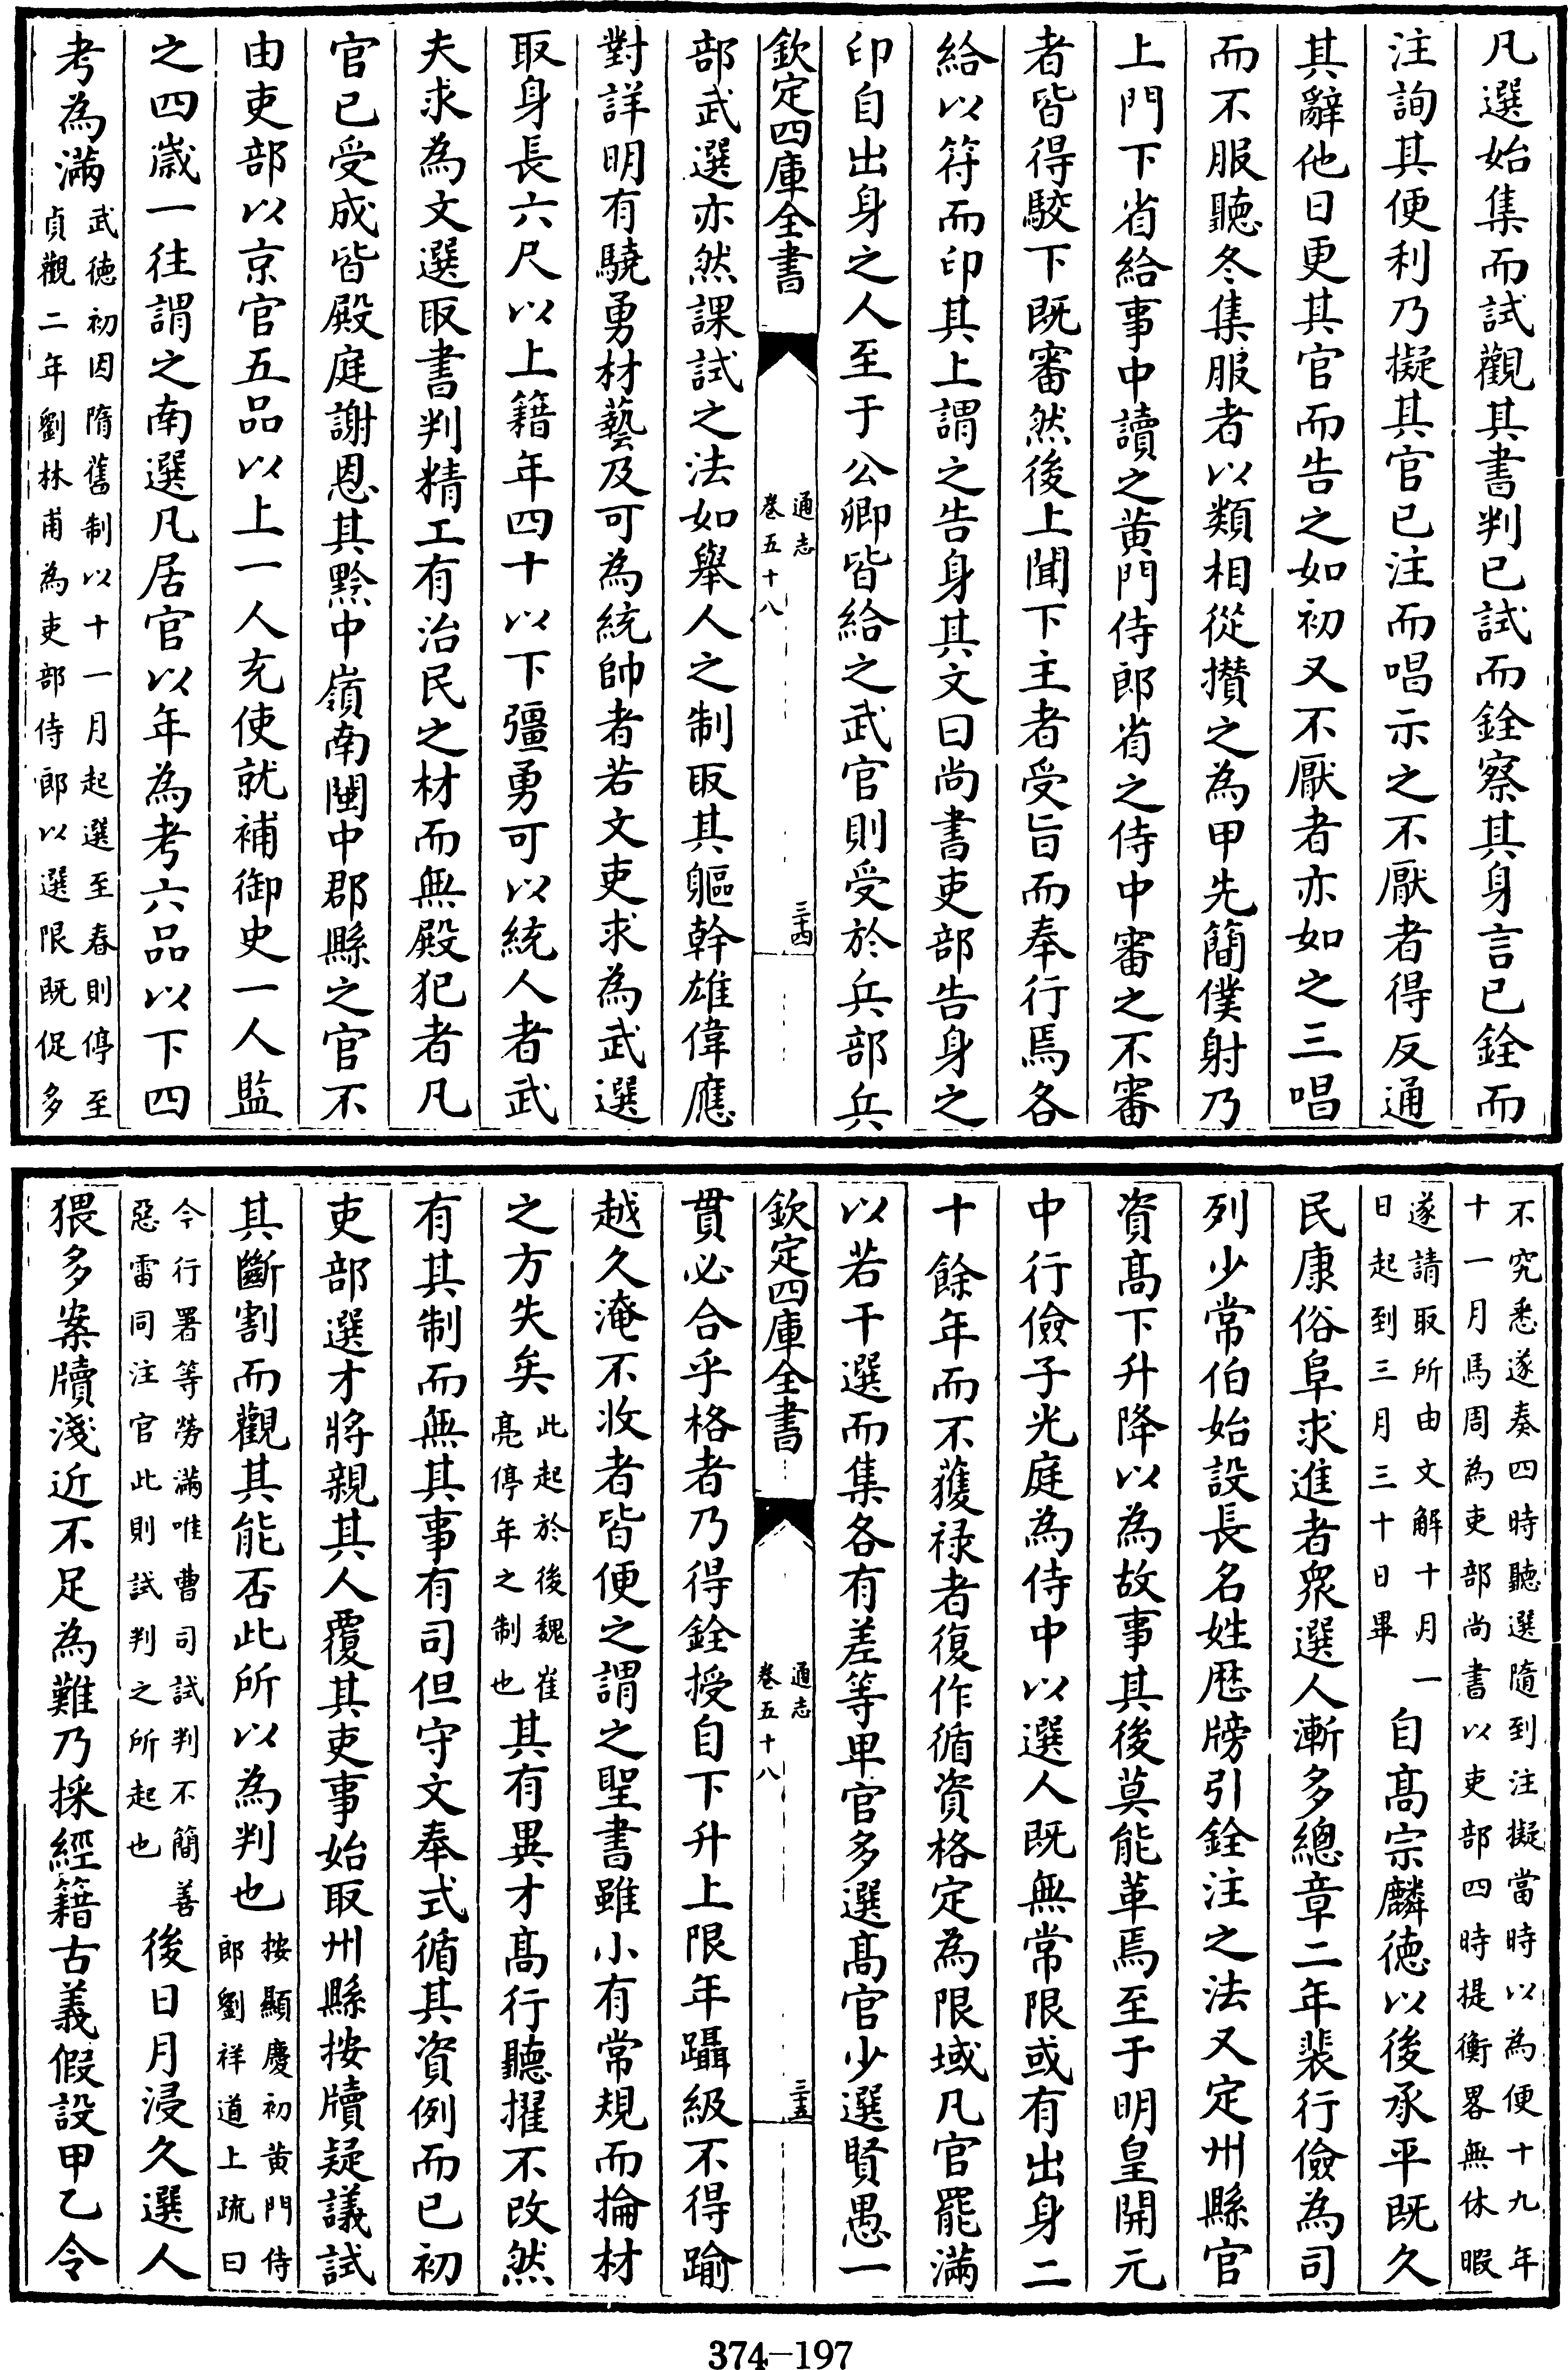 凡選始集而試觀其書判已試而銓察其身言已銓而
注詢其便利乃擬其官已注而唱示之不厭者得反通
其辭他日更其官而告之如初又不厭者亦如之三唱
而不服聽冬集服者以類相從攅之為甲先簡僕射乃
上門下省給事中讀之黄門侍郎省之侍中審之不審
者皆得駮下既審然後上聞下主者受旨而奉行焉各
給以符而印其上謂之告身其文曰尚書吏部告身之
印自出身之人至于公卿皆給之武官則受於兵部兵
欽定四庫全書
通志
卷五十八
三十四
部武選亦然課試之法如舉人之制取其軀幹雄偉應
對詳明有驍勇材藝及可為統帥者若文吏求為武選
取身長六尺以上籍年四十以下彊勇可以統人者武
夫求為文選取書判精工有治民之材而無殿犯者凡
官已受成皆殿庭謝恩其黔中嶺南閩中郡縣之官不
由吏部以京官五品以上一人充使就補御史一人監
之四歲一往謂之南選凡居官以年為考六品以下四
考為滿
武徳初因隋舊制以十一月起選至春則停至
貞觀二年劉林甫為吏部侍郎以選限既促多
不究悉遂奏四時聽選隨到注擬當時以為便十九年
十一月馬周為吏部尚書以吏部四時提衡畧無休暇
遂請取所由文解十月一
日起到三月三十日畢
自髙宗麟徳以後承平既久
民康俗阜求進者衆選人漸多總章二年裴行儉為司
列少常伯始設長名姓厯牓引銓注之法又定州縣官
資髙下升降以為故事其後莫能革焉至于明皇開元
中行儉子光庭為侍中以選人既無常限或有出身二
十餘年而不獲禄者復作循資格定為限域凡官罷滿
以若干選而集各有差等卑官多選髙官少選賢愚一
欽定四庫全書
通志
卷五十八
三十五
貫必合乎格者乃得銓授自下升上限年躡級不得踰
越久淹不收者皆便之謂之聖書雖小有常規而掄材
之方失矣
此起於後魏崔
亮停年之制也
其有異才髙行聽擢不改然
有其制而無其事有司但守文奉式循其資例而已初
吏部選才將親其人覆其吏事始取州縣按牘疑議試
其斷割而觀其能否此所以為判也
按顯慶初黄門侍
郎劉祥道上疏曰
今行署等勞滿唯曹司試判不簡善
惡雷同注官此則試判之所起也
後日月浸久選人
猥多案牘淺近不足為難乃採經籍古義假設甲乙令
374-197